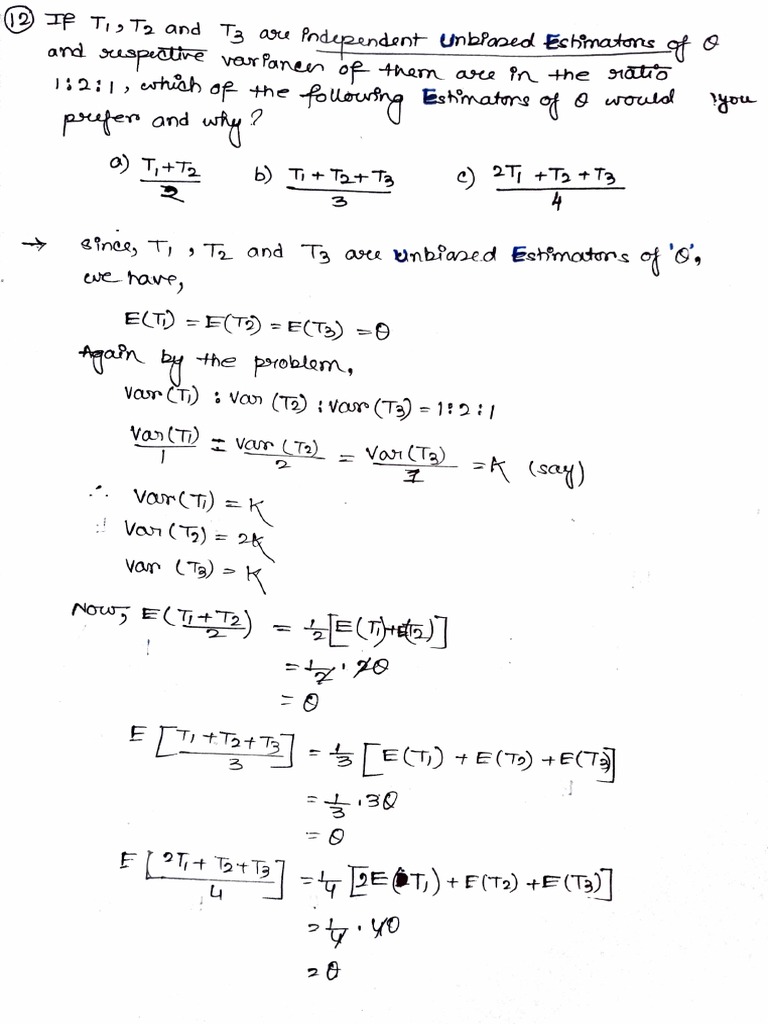 (12) If T1, T2 and T3 are independent Unbiased Estimators of θ
and respective variances of them are in the ratio
1:2:1, which of the following Estimators of θ would you
prefer and why?
a) (T1+T2)/2 b) (T1+T2+T3)/3 c) (2T1+T2+T3)/4
→ since, T1, T2 and T3 are Unbiased Estimators of 'θ',
we have,
E(T1) = E(T2) = E(T3) = θ
Again by the problem,
Var(T1) : Var(T2) : Var(T3) = 1:2:1
Var(T1)/1 = Var(T2)/2 = Var(T3)/1 = K (say)
∴ Var(T1) = K
Var(T2) = 2K
Var(T3) = K
Now, E((T1+T2)/2) = 1/2[E(T1)+E(T2)]
= 1/2 · 2θ
= θ
E[(T1+T2+T3)/3] = 1/3 [E(T1) + E(T2) + E(T3)]
= 1/3 · 3θ
= θ
E[(2T1+T2+T3)/4] = 1/4 [2E(T1) + E(T2) + E(T3)]
= 1/4 · 4θ
= θ